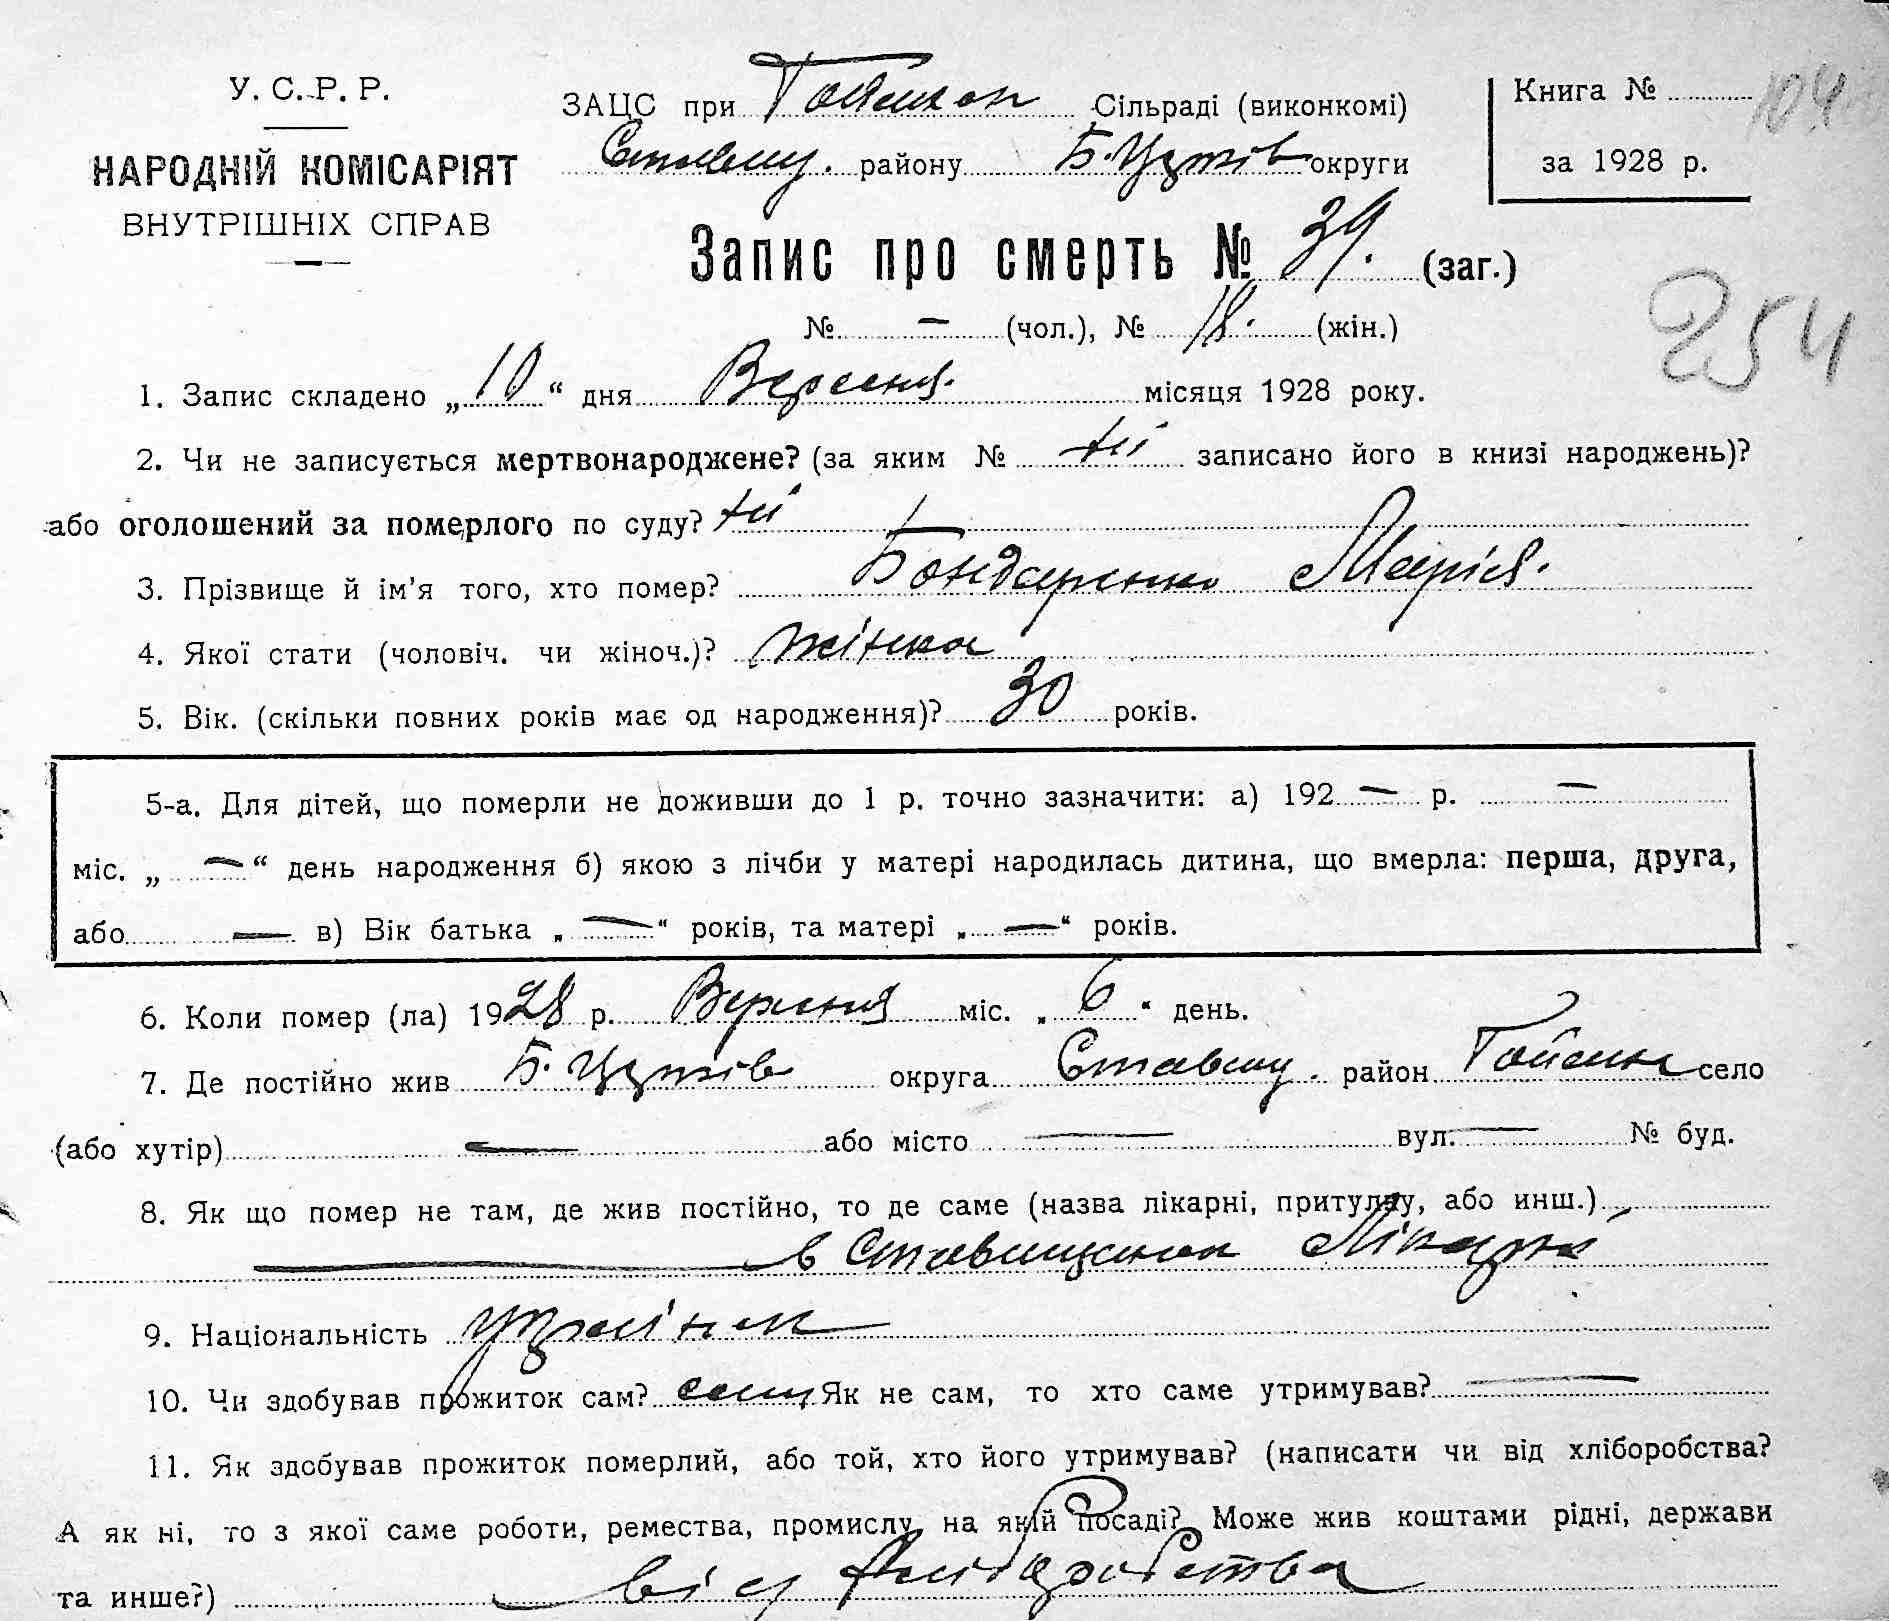 У. С. Р. Р.
НАРОДНІЙ КОМІСАРІЯТ
ВНУТРІШНІХ СПРАВ
ЗАЦС при Гойсин Сільраді (виконкомі)
Ставищ. району Б. Церків округи
Книга № 104
за 1928 р.
Запис про смерть № 39. (заг.)
254
№ — (чол.), № 18. (жін.)
1. Запис складено „10“ дня Вересня місяця 1928 року.
2. Чи не записується мертвонароджене? (за яким № ні записано його в книзі народжень)?
або оголошений за померлого по суду? ні
3. Прізвище й ім’я того, хто помер? Бондаренко Марія.
4. Якої стати (чоловіч. чи жіноч.)? жінка
5. Вік. (скільки повних років має од народження)? 30 років.
5-а. Для дітей, що померли не доживши до 1 р. точно зазначити: а) 192 — р. —
міс. „—“ день народження б) якою з лічби у матері народилась дитина, що вмерла: перша, друга,
або — в) Вік батька „—“ років, та матері „—“ років.
6. Коли помер (ла) 1928 р. Вересня міс. „6“ день.
7. Де постійно жив Б. Церків округа Ставищ. район село
(або хутір) — або місто — вул. — № буд.
8. Як що помер не там, де жив постійно, то де саме (назва лікарні, притулку, або инш.)
— в Ставищенска Лікарні
9. Національність україінка
10. Чи здобував прожиток сам? сам Як не сам, то хто саме утримував? —
11. Як здобував прожиток померлий, або той, хто його утримував? (написати чи від хліборобства?
А як ні, то з якої саме роботи, ремества, промислу, на якій посаді? Може жив коштами рідні, держави
та инше?) від хліборобства